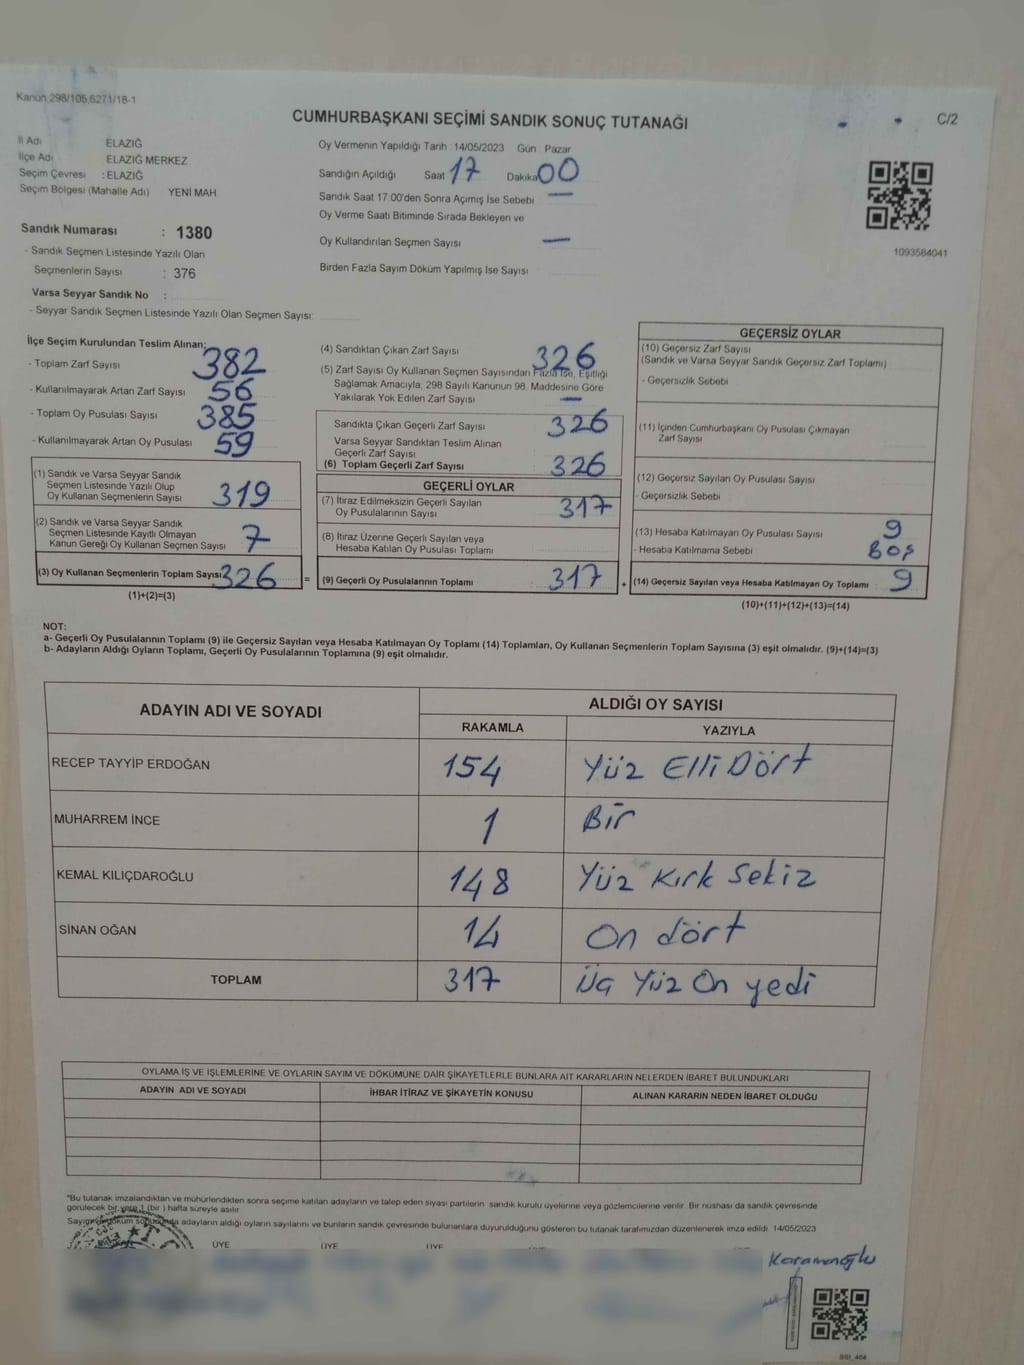 Kanun 298/105,6271/18-1
CUMHURBAŞKANI SEÇİMİ SANDIK SONUÇ TUTANAĞI
C/2
İl Adı ELAZIĞ
İlçe Adı ELAZIĞ MERKEZ
Seçim Çevresi : ELAZIĞ
Seçim Bölgesi (Mahalle Adı) YENİ MAH
Sandık Numarası : 1380
- Sandık Seçmen Listesinde Yazılı Olan
Seçmenlerin Sayısı : 376
Varsa Seyyar Sandık No :
- Seyyar Sandık Seçmen Listesinde Yazılı Olan Seçmen Sayısı:
Oy Vermenin Yapıldığı Tarih : 14/05/2023 Gün Pazar
Sandığın Açıldığı Saat 17 Dakika 00
Sandık Saat 17:00'den Sonra Açımış İse Sebebi —
Oy Verme Saati Bitiminde Sırada Bekleyen ve
Oy Kullandırılan Seçmen Sayısı —
Birden Fazla Sayım Döküm Yapılmış İse Sayısı
1093584041
İlçe Seçim Kurulundan Teslim Alınan:
- Toplam Zarf Sayısı 382
- Kullanılmayarak Artan Zarf Sayısı 56
- Toplam Oy Pusulası Sayısı 385
- Kullanılmayarak Artan Oy Pusulası 59
(1) Sandık ve Varsa Seyyar Sandık
Seçmen Listesinde Yazılı Olup
Oy Kullanan Seçmenlerin Sayısı 319
(2) Sandık ve Varsa Seyyar Sandık
Seçmen Listesinde Kayıtlı Olmayan
Kanun Gereği Oy Kullanan Seçmen Sayısı 7
(3) Oy Kullanan Seçmenlerin Toplam Sayısı 326
(1)+(2)=(3)
(4) Sandıktan Çıkan Zarf Sayısı 326
(5) Zarf Sayısı Oy Kullanan Seçmen Sayısından Fazla İse, Eşitliği
Sağlamak Amacıyla, 298 Sayılı Kanunun 98. Maddesine Göre
Yakılarak Yok Edilen Zarf Sayısı —
Sandıkta Çıkan Geçerli Zarf Sayısı 326
Varsa Seyyar Sandıktan Teslim Alınan
Geçerli Zarf Sayısı
(6) Toplam Geçerli Zarf Sayısı 326
GEÇERLİ OYLAR
(7) İtiraz Edilmeksizin Geçerli Sayılan
Oy Pusulalarının Sayısı 317
(8) İtiraz Üzerine Geçerli Sayılan veya
Hesaba Katılan Oy Pusulası Toplamı
= (9) Geçerli Oy Pusulalarının Toplamı : 317 +
GEÇERSİZ OYLAR
(10) Geçersiz Zarf Sayısı
(Sandık ve Varsa Seyyar Sandık Geçersiz Zarf Toplamı)
- Geçersizlik Sebebi
(11) İçinden Cumhurbaşkanı Oy Pusulası Çıkmayan
Zarf Sayısı
(12) Geçersiz Sayılan Oy Pusulası Sayısı
- Geçersizlik Sebebi
(13) Hesaba Katılmayan Oy Pusulası Sayısı 9
- Hesaba Katılmama Sebebi BOŞ
(14) Geçersiz Sayılan veya Hesaba Katılmayan Oy Toplamı 9
(10)+(11)+(12)+(13)=(14)
NOT:
a- Geçerli Oy Pusulalarının Toplamı (9) ile Geçersiz Sayılan veya Hesaba Katılmayan Oy Toplamı (14) Toplamları, Oy Kullanan Seçmenlerin Toplam Sayısına (3) eşit olmalıdır. (9)+(14)=(3)
b- Adayların Aldığı Oyların Toplamı, Geçerli Oy Pusulalarının Toplamına (9) eşit olmalıdır.
ADAYIN ADI VE SOYADI ALDIĞI OY SAYISI
RAKAMLA YAZIYLA
RECEP TAYYİP ERDOĞAN 154 Yüz Elli Dört
MUHARREM İNCE 1 Bir
KEMAL KILIÇDAROĞLU 148 Yüz Kırk Sekiz
SİNAN OĞAN 14 On dört
TOPLAM 317 Üç Yüz On yedi
OYLAMA İŞ VE İŞLEMLERİNE VE OYLARIN SAYIM VE DÖKÜMÜNE DAİR ŞİKAYETLERLE BUNLARA AİT KARARLARIN NELERDEN İBARET BULUNDUKLARI
ADAYIN ADI VE SOYADI İHBAR İTİRAZ VE ŞİKAYETİN KONUSU ALINAN KARARIN NEDEN İBARET OLDUĞU
"Bu tutanak imzalandıktan ve mühürlendikten sonra seçime katılan adayların ve talep eden siyasi partilerin sandık kurulu üyelerine veya gözlemcilerine verilir. Bir nüshası da sandık çevresinde
görülecek bir yere 1 (bir) hafta süreyle asılır
Sayım döküm sonucunda adayların aldığı oyların sayılarını ve bunların sandık çevresinde bulunanlara duyurulduğunu gösteren bu tutanak tarafımızdan düzenlenerek imza edildi. 14/05/2023
ÜYE ÜYE ÜYE ÜYE ÜYE
Karamanoğlu
SSI_404